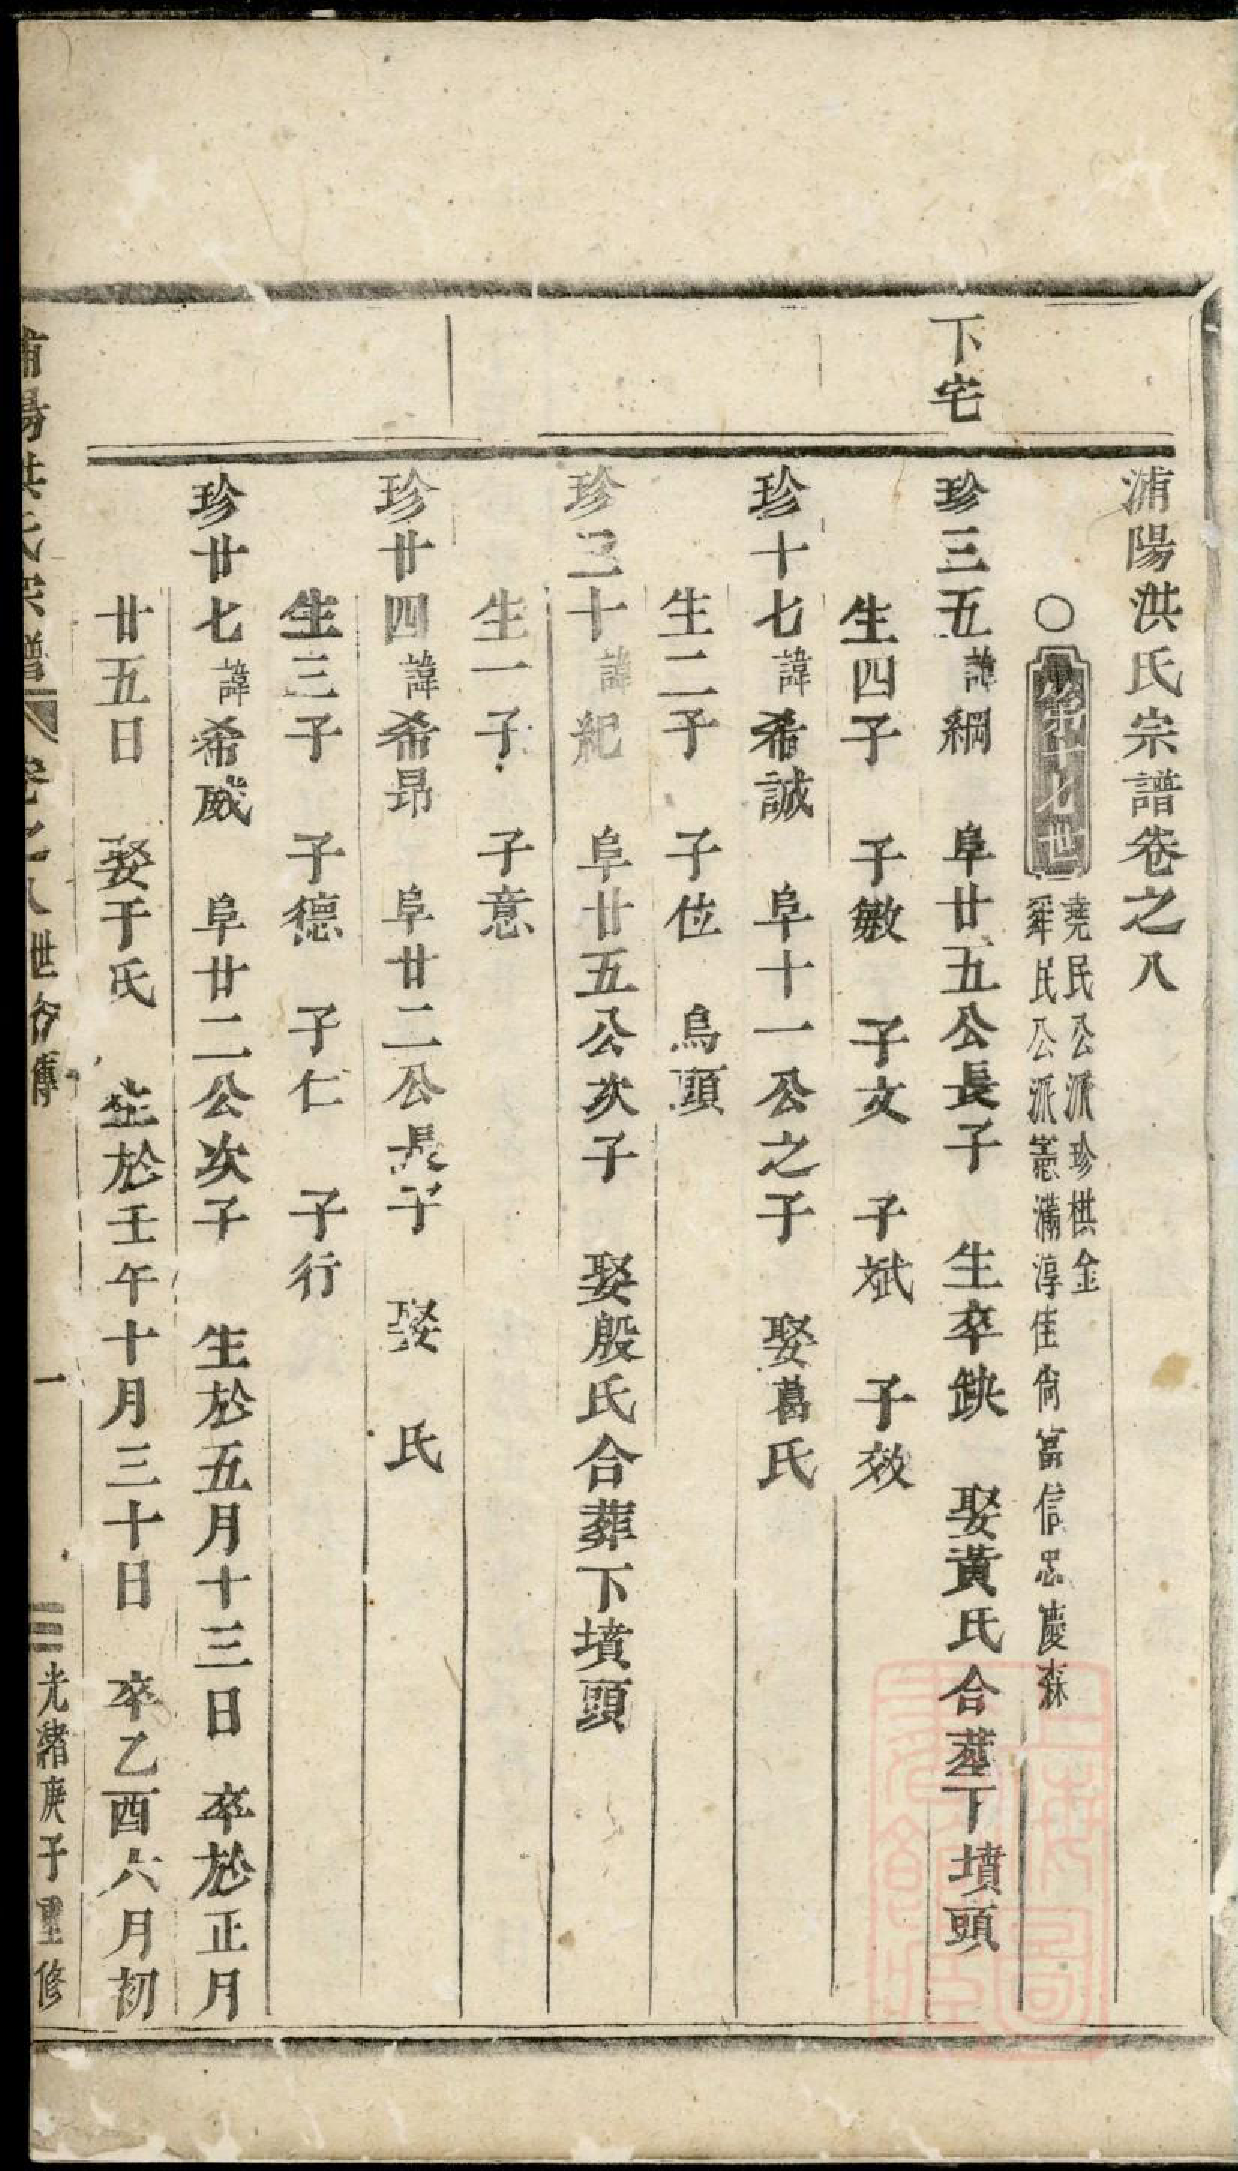 浦陽洪氏宗譜卷之八
○第十七世
堯民公派珍棋金
舜民公派憲滿淳佳尙富信忠慶森
下宅
珍三五諱綱　阜廿五公長子　生卒缺　娶黃氏合葬下墳頭
生四子　子敏　子文　子斌　子效
珍十七諱希誠　阜十一公之子　娶葛氏
生二子　子位　烏頭
珍三十諱紀　阜廿五公次子　娶殷氏合葬下墳頭
生一子　子意
珍廿四諱希昂　阜廿二公長子　娶　氏
生三子　子德　子仁　子行
珍廿七諱希威　阜廿二公次子　生於五月十三日　卒於正月
廿五日　娶于氏　生於壬午十月三十日　卒乙酉六月初
浦陽洪氏宗譜　卷之八世行傳　一　光緒庚子重修